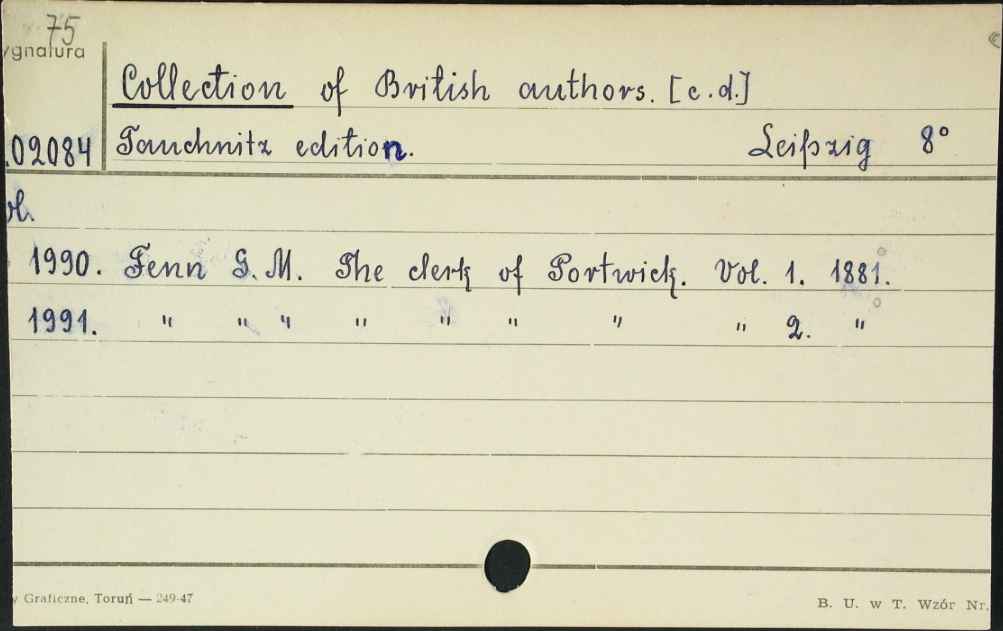 75
ygnatura
Collection of British authors. [c.d.]
.02084 Tauchnitz edition. Leipzig 8°
ol.
1990. Fenn G. M. The clerk of Portwick. Vol. 1. 1881.
1991. " " " " " " " " 2. "
Graficzne, Toruń — 249-47
B. U. w T. Wzór Nr.